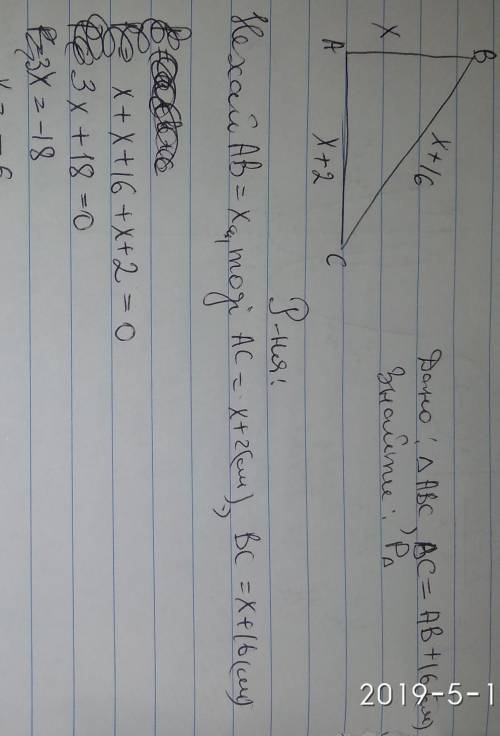 B
x
x+16
A
x+2
C
Дано: △ABC, BC = AB+16(см)
Знайти: P△
Р-ня:
Нехай AB = x, тоді AC = x+2(см), BC = x+16(см)
x+x+16+x+2=0
3x+18=0
3x=-18
x=-6
2019-5-1